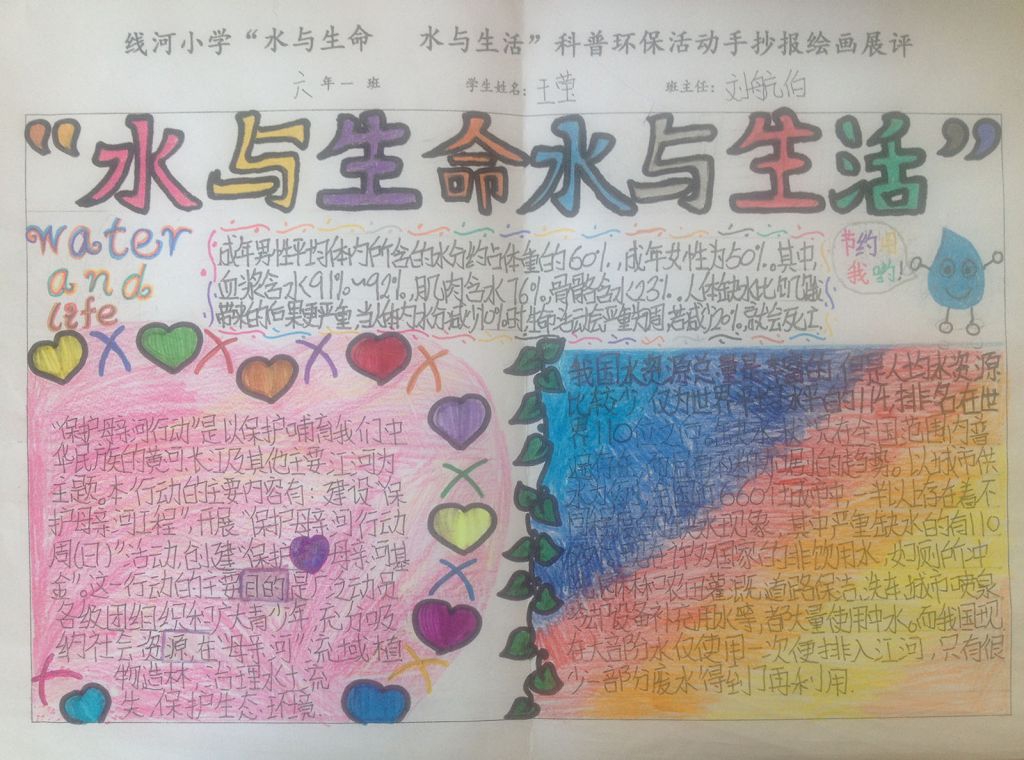 线河小学“水与生命 水与生活”科普环保活动手抄报绘画展评
六年一班 学生姓名：王莹 班主任：刘航伯
“水与生命水与生活”
water
and
Life
成年男性平均体内所含的水分约占体重的60%，成年女性为50%。其中
血浆含水91%~92%，肌肉含水76%，骨骼含水23%。人体缺水比饥饿
带来的后果更严重，当人体内水分减少10%时，生命活动会严重紊乱，若减少20%，就会死亡
节约用
我哟！
“保护母亲河行动”是以保护哺育我们中
华民族的黄河、长江及其他主要江河为
主题。本行动的主要内容有：建设“保
护母亲河工程”开展“保护母亲河行动
周(日)”活动，创建“保护母亲河基
金”。这一行动的主要目的是广泛动员
各级团组织和广大青少年，充分吸
纳社会资源，在“母亲河”流域植
物造林，合理水土流
失，保护生态环境.
我国水资源总量是丰富的，但是人均水资源
比较少，仅为世界平均水平的1/4，排名在世
界110位之后。
以城市供
660个城市中，一半以上存在着不
缺水现象，其中严重缺水的有110
国家的非饮用水，如厕所冲
林和农田灌溉，道路保洁，洗车，城市喷泉
设备补充用水等，都大量使用中水。而我国现
在大部分水仅使用一次便排入江河，只有很
少一部分废水得到了再利用.